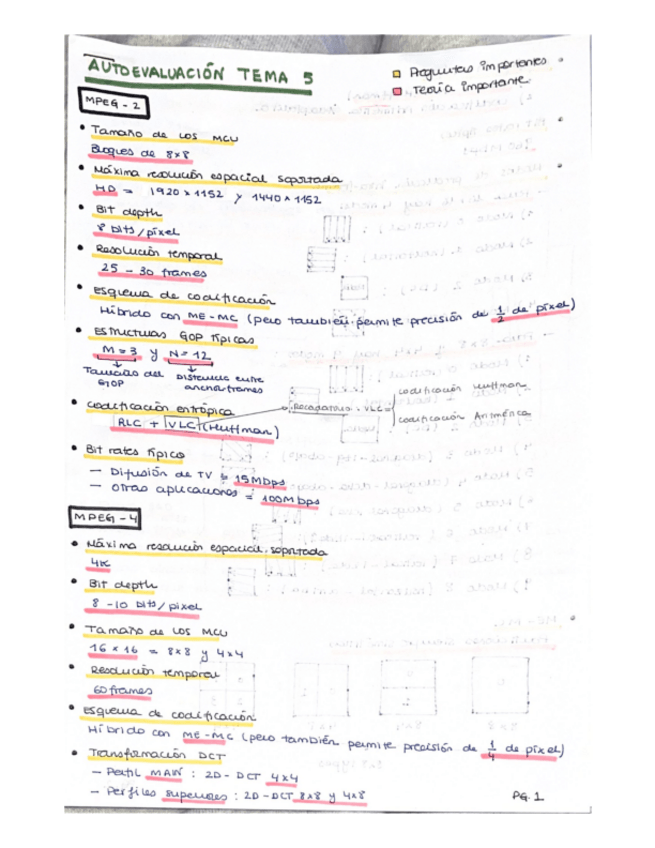 AUTOEVALUACIÓN TEMA 5
Preguntas importantes
Teoría importante
MPEG-2
• Tamaño de los MCU
Bloques de 8x8
• Máxima resolución espacial soportada
HD = 1920 x 1152 y 1440 x 1152
• Bit depth
8 bits/píxel
• Resolución temporal
25 - 30 frames
• Esquema de codificación
Híbrido con ME-MC (pero también permite precisión de 1/2 de píxel)
• Estructuras GOP típicas
M=3 y N=12
Tamaño del GOP
Distancia entre anchor frames
• Codificación entrópica
RLC + VLC (Huffman)
Recordatorio: VLC =
codificación Huffman
codificación Aritmética
• Bit rates típico
— Difusión de TV = 15Mbps
— Otras aplicaciones = 100Mbps
MPEG-4
• Máxima resolución espacial soportada
4K
• Bit depth
8-10 bits/pixel
• Tamaño de los MCU
16x16 = 8x8 y 4x4
• Resolución temporal
60 frames
• Esquema de codificación
Híbrido con ME-MC (pero también permite precisión de 1/4 de píxel)
• Transformación DCT
— Perfil MAIN: 2D-DCT 4x4
— Perfiles superiores: 2D-DCT 8x8 y 4x8
PG. 1